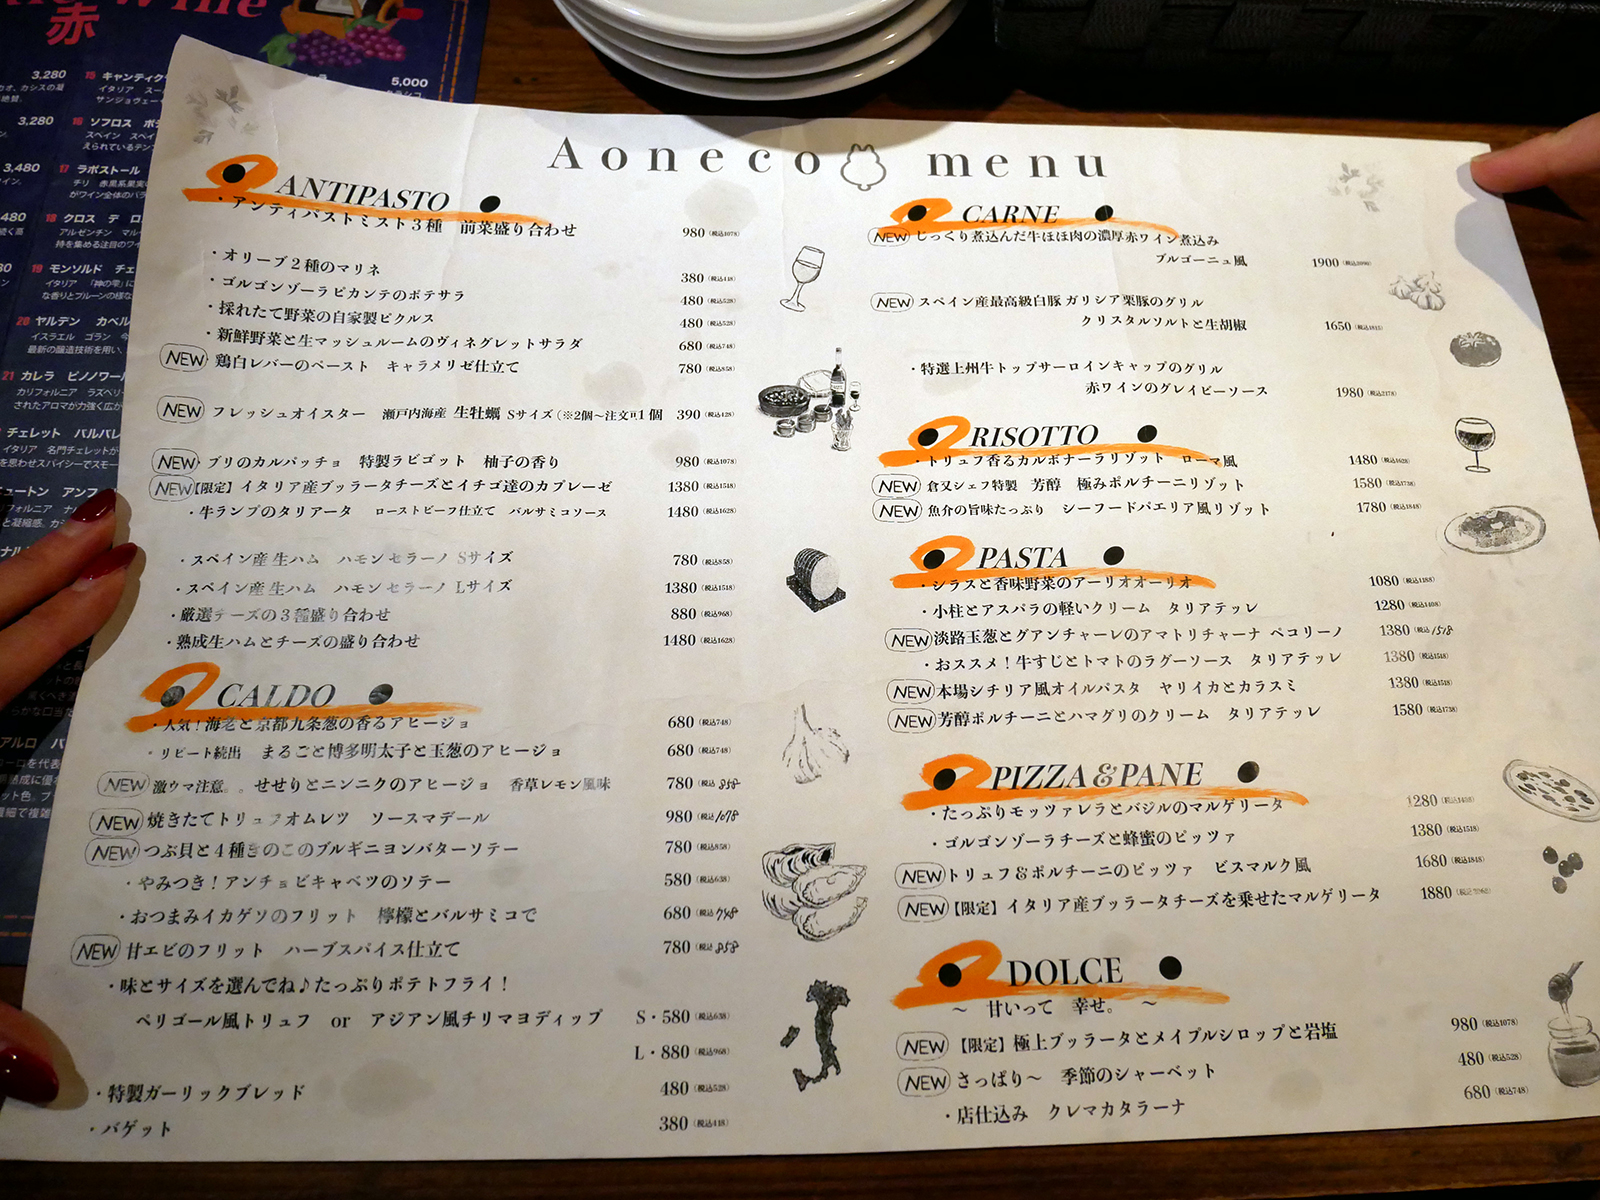 Aoneco menu
ANTIPASTO
・アンティパストミスト3種 前菜盛り合わせ 980（税込1078）
・オリーブ2種のマリネ 380（税込418）
・ゴルゴンゾーラピカンテのポテサラ 480（税込528）
・採れたて野菜の自家製ピクルス 480（税込528）
・新鮮野菜と生マッシュルームのヴィネグレットサラダ 680（税込748）
NEW 鶏白レバーのペースト キャラメリゼ仕立て 780（税込858）
NEW フレッシュオイスター 瀬戸内海産 生牡蠣 Sサイズ（※2個〜注文可1個 390（税込428）
NEW・ブリのカルパッチョ 特製ラビゴット 柚子の香り 980（税込1078）
NEW【限定】イタリア産ブッラータチーズとイチゴ達のカプレーゼ 1380（税込1518）
・牛ランプのタリアータ ローストビーフ仕立て バルサミコソース 1480（税込1628）
・スペイン産 生ハム ハモン セラーノ Sサイズ 780（税込858）
・スペイン産 生ハム ハモン セラーノ Lサイズ 1380（税込1518）
・厳選チーズの3種盛り合わせ 880（税込968）
・熟成生ハムとチーズの盛り合わせ 1480（税込1628）
CALDO
・人気！海老と京都九条葱の香るアヒージョ 680（税込748）
・リピート続出 まるごと博多明太子と玉葱のアヒージョ 680（税込748）
NEW 激ウマ注意。。せせりとニンニクのアヒージョ 香草レモン風味 780（税込858
NEW 焼きたてトリュフオムレツ ソースマデール 980（税込1078
NEW つぶ貝と4種きのこのブルギニヨンバターソテー 780（税込858）
・やみつき！アンチョビキャベツのソテー 580（税込638）
・おつまみイカゲソのフリット 檸檬とバルサミコで 680（税込748
NEW 甘エビのフリット ハーブスパイス仕立て 780（税込858
・味とサイズを選んでね♪たっぷりポテトフライ！
ペリゴール風トリュフ or アジアン風チリマヨディップ S・580（税込638）
L・880（税込968）
・特製ガーリックブレッド 480（税込528）
・バゲット 380（税込418）
CARNE
NEW じっくり煮込んだ牛ほほ肉の濃厚赤ワイン煮込み
ブルゴーニュ風 1900
NEW スペイン産最高級白豚 ガリシア栗豚のグリル
クリスタルソルトと生胡椒 1650（税込1815）
・特選上州牛トップサーロインキャップのグリル
赤ワインのグレイビーソース 1980（税込2178）
RISOTTO
・トリュフ香るカルボナーラリゾット ローマ風 1480（税込1628）
NEW 倉又シェフ特製 芳醇 極みポルチーニリゾット 1580（税込1738）
NEW 魚介の旨味たっぷり シーフードパエリア風リゾット 1780（税込1848）
PASTA
・シラスと香味野菜のアーリオオーリオ 1080（税込1188）
・小柱とアスパラの軽いクリーム タリアテッレ 1280（税込1408）
NEW 淡路玉葱とグアンチャーレのアマトリチャーナ ペコリーノ 1380（税込1518
・おススメ！牛すじとトマトのラグーソース タリアテッレ 1380（税込1518）
NEW 本場シチリア風オイルパスタ ヤリイカとカラスミ 1380（税込1518）
NEW 芳醇ポルチーニとハマグリのクリーム タリアテッレ 1580（税込1738）
PIZZA&PANE
・たっぷりモッツァレラとバジルのマルゲリータ 1280（税込1408）
・ゴルゴンゾーラチーズと蜂蜜のピッツァ 1380（税込1518）
NEW トリュフ＆ポルチーニのピッツァ ビスマルク風 1680（税込1848）
NEW【限定】イタリア産ブッラータチーズを乗せたマルゲリータ 1880
DOLCE
〜 甘いって 幸せ。 〜
NEW【限定】極上ブッラータとメイプルシロップと岩塩 980（税込1078）
NEW さっぱり〜 季節のシャーベット 480（税込528）
・店仕込み クレマカタラーナ 680（税込748）
赤
3,280
15 キャンティク
5,000
3,280
16 ソフロス
3,480
17 ラポストール
18 クロス デ ロ
19 モンソルド チェ
20 ヤルデン カベル
イスラエル ゴラン
21 カレラ ピノノワール
チェレット バルバレ